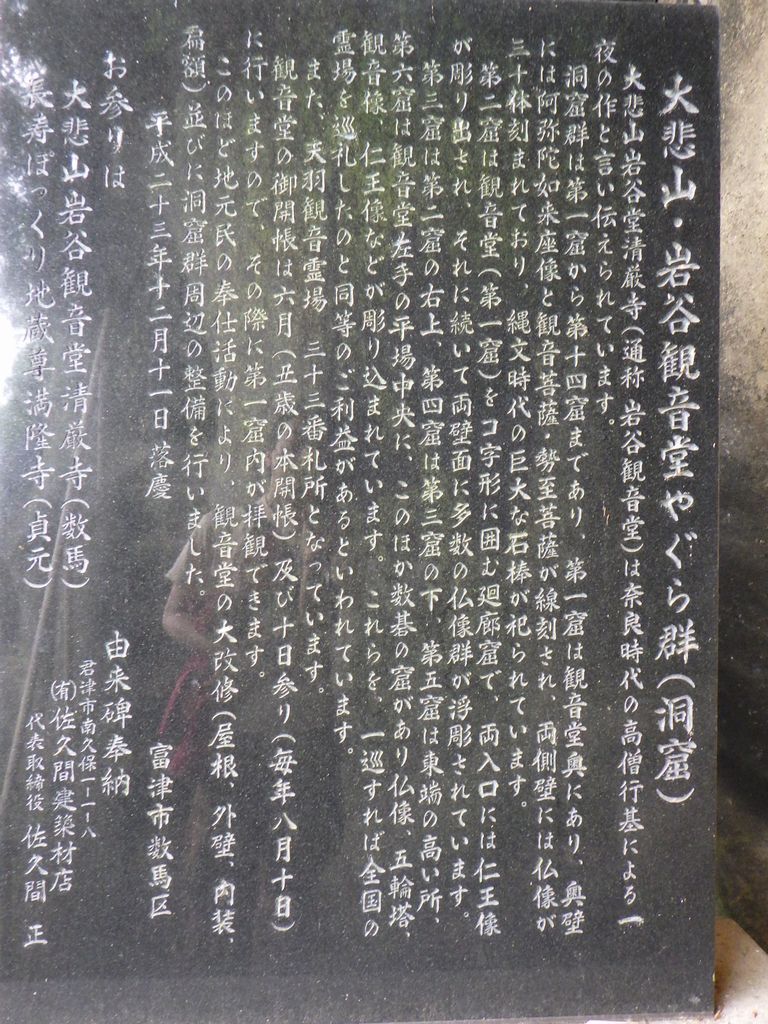 大悲山・岩谷観音堂やぐら群(洞窟)
大悲山岩谷堂清厳寺(通称 岩谷観音堂)は奈良時代の高僧行基による一
夜の作と言い伝えられています。
洞窟群は第一窟から第十四窟まであり、第一窟は観音堂奥にあり、奥壁
には阿弥陀如来座像と観音菩薩・勢至菩薩が線刻され、両側壁には仏像が
三十体刻まれており、縄文時代の巨大な石棒が祀られています。
第二窟は観音堂(第一窟)をコ字形に囲む廻廊窟で、両入口には仁王像
が彫り出され、それに続いて両壁面に多数の仏像群が浮彫されています。
第三窟は第二窟の右上、第四窟は第三窟の下、第五窟は東端の高い所、
第六窟は観音堂左手の平場中央に、このほか数基の窟があり仏像、五輪塔、
観音様 仁王像などが彫り込まれています。これらを、一巡すれば全国の
霊場を巡礼したのと同等のご利益があるといわれています。
また、天羽観音霊場 三十三番札所となっています。
観音堂の御開帳は六月(丑歳の本開帳)及び十日参り(毎年八月十日)
に行いますので、その際に第一窟内が拝観できます。
このほど地元民の奉仕活動により、観音堂の大改修(屋根、外壁、内装、
扁額)並びに洞窟群周辺の整備を行いました。
平成二十三年十二月十一日 落慶
富津市数馬区
お参りは
大悲山岩谷観音堂清厳寺(数馬)
長寿ぽっくり地蔵尊満隆寺(貞元)
由来碑奉納
君津市南久保一ー一ー八
(有)佐久間建築材店
代表取締役 佐久間 正